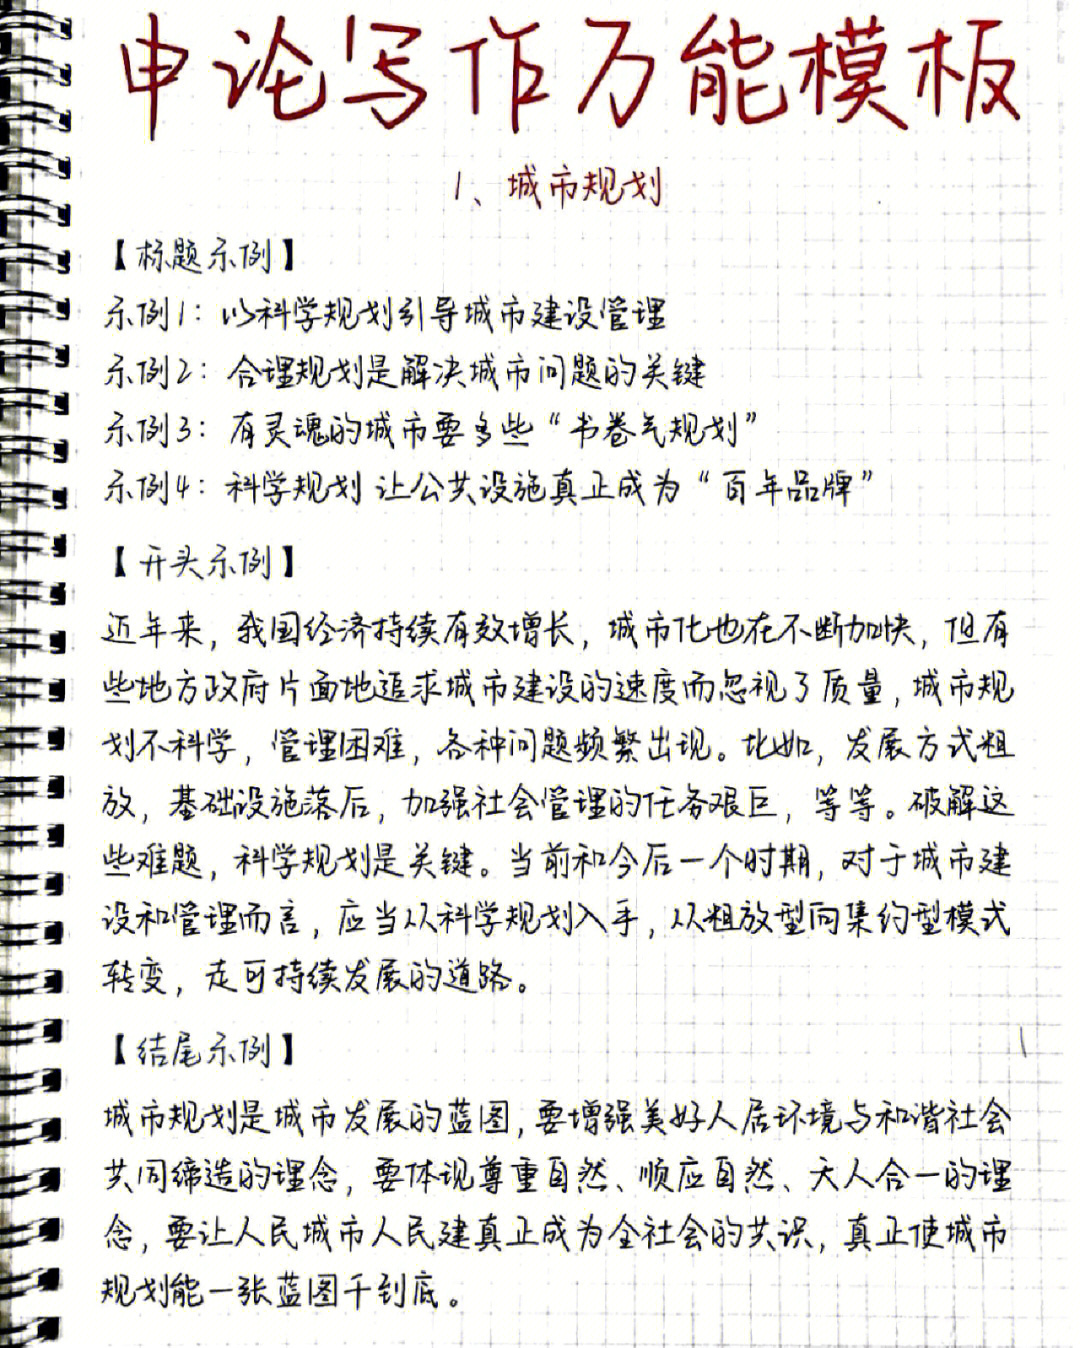 申论写作万能模板
1、城市规划
【标题示例】
示例1：以科学规划引导城市建设管理
示例2：合理规划是解决城市问题的关键
示例3：有灵魂的城市要多些“书卷气规划”
示例4：科学规划 让公共设施真正成为“百年品牌”
【开头示例】
近年来，我国经济持续有效增长，城市化也在不断加快，但有
些地方政府片面地追求城市建设的速度而忽视了质量，城市规
划不科学，管理困难，各种问题频繁出现。比如，发展方式粗
放，基础设施落后，加强社会管理的任务艰巨，等等。破解这
些难题，科学规划是关键。当前和今后一个时期，对于城市建
设和管理而言，应当从科学规划入手，从粗放型向集约型模式
转变，走可持续发展的道路。
【结尾示例】
城市规划是城市发展的蓝图，要增强美好人居环境与和谐社会
共同缔造的理念，要体现尊重自然、顺应自然、天人合一的理
念，要让人民城市人民建真正成为全社会的共识，真正使城市
规划能一张蓝图干到底。